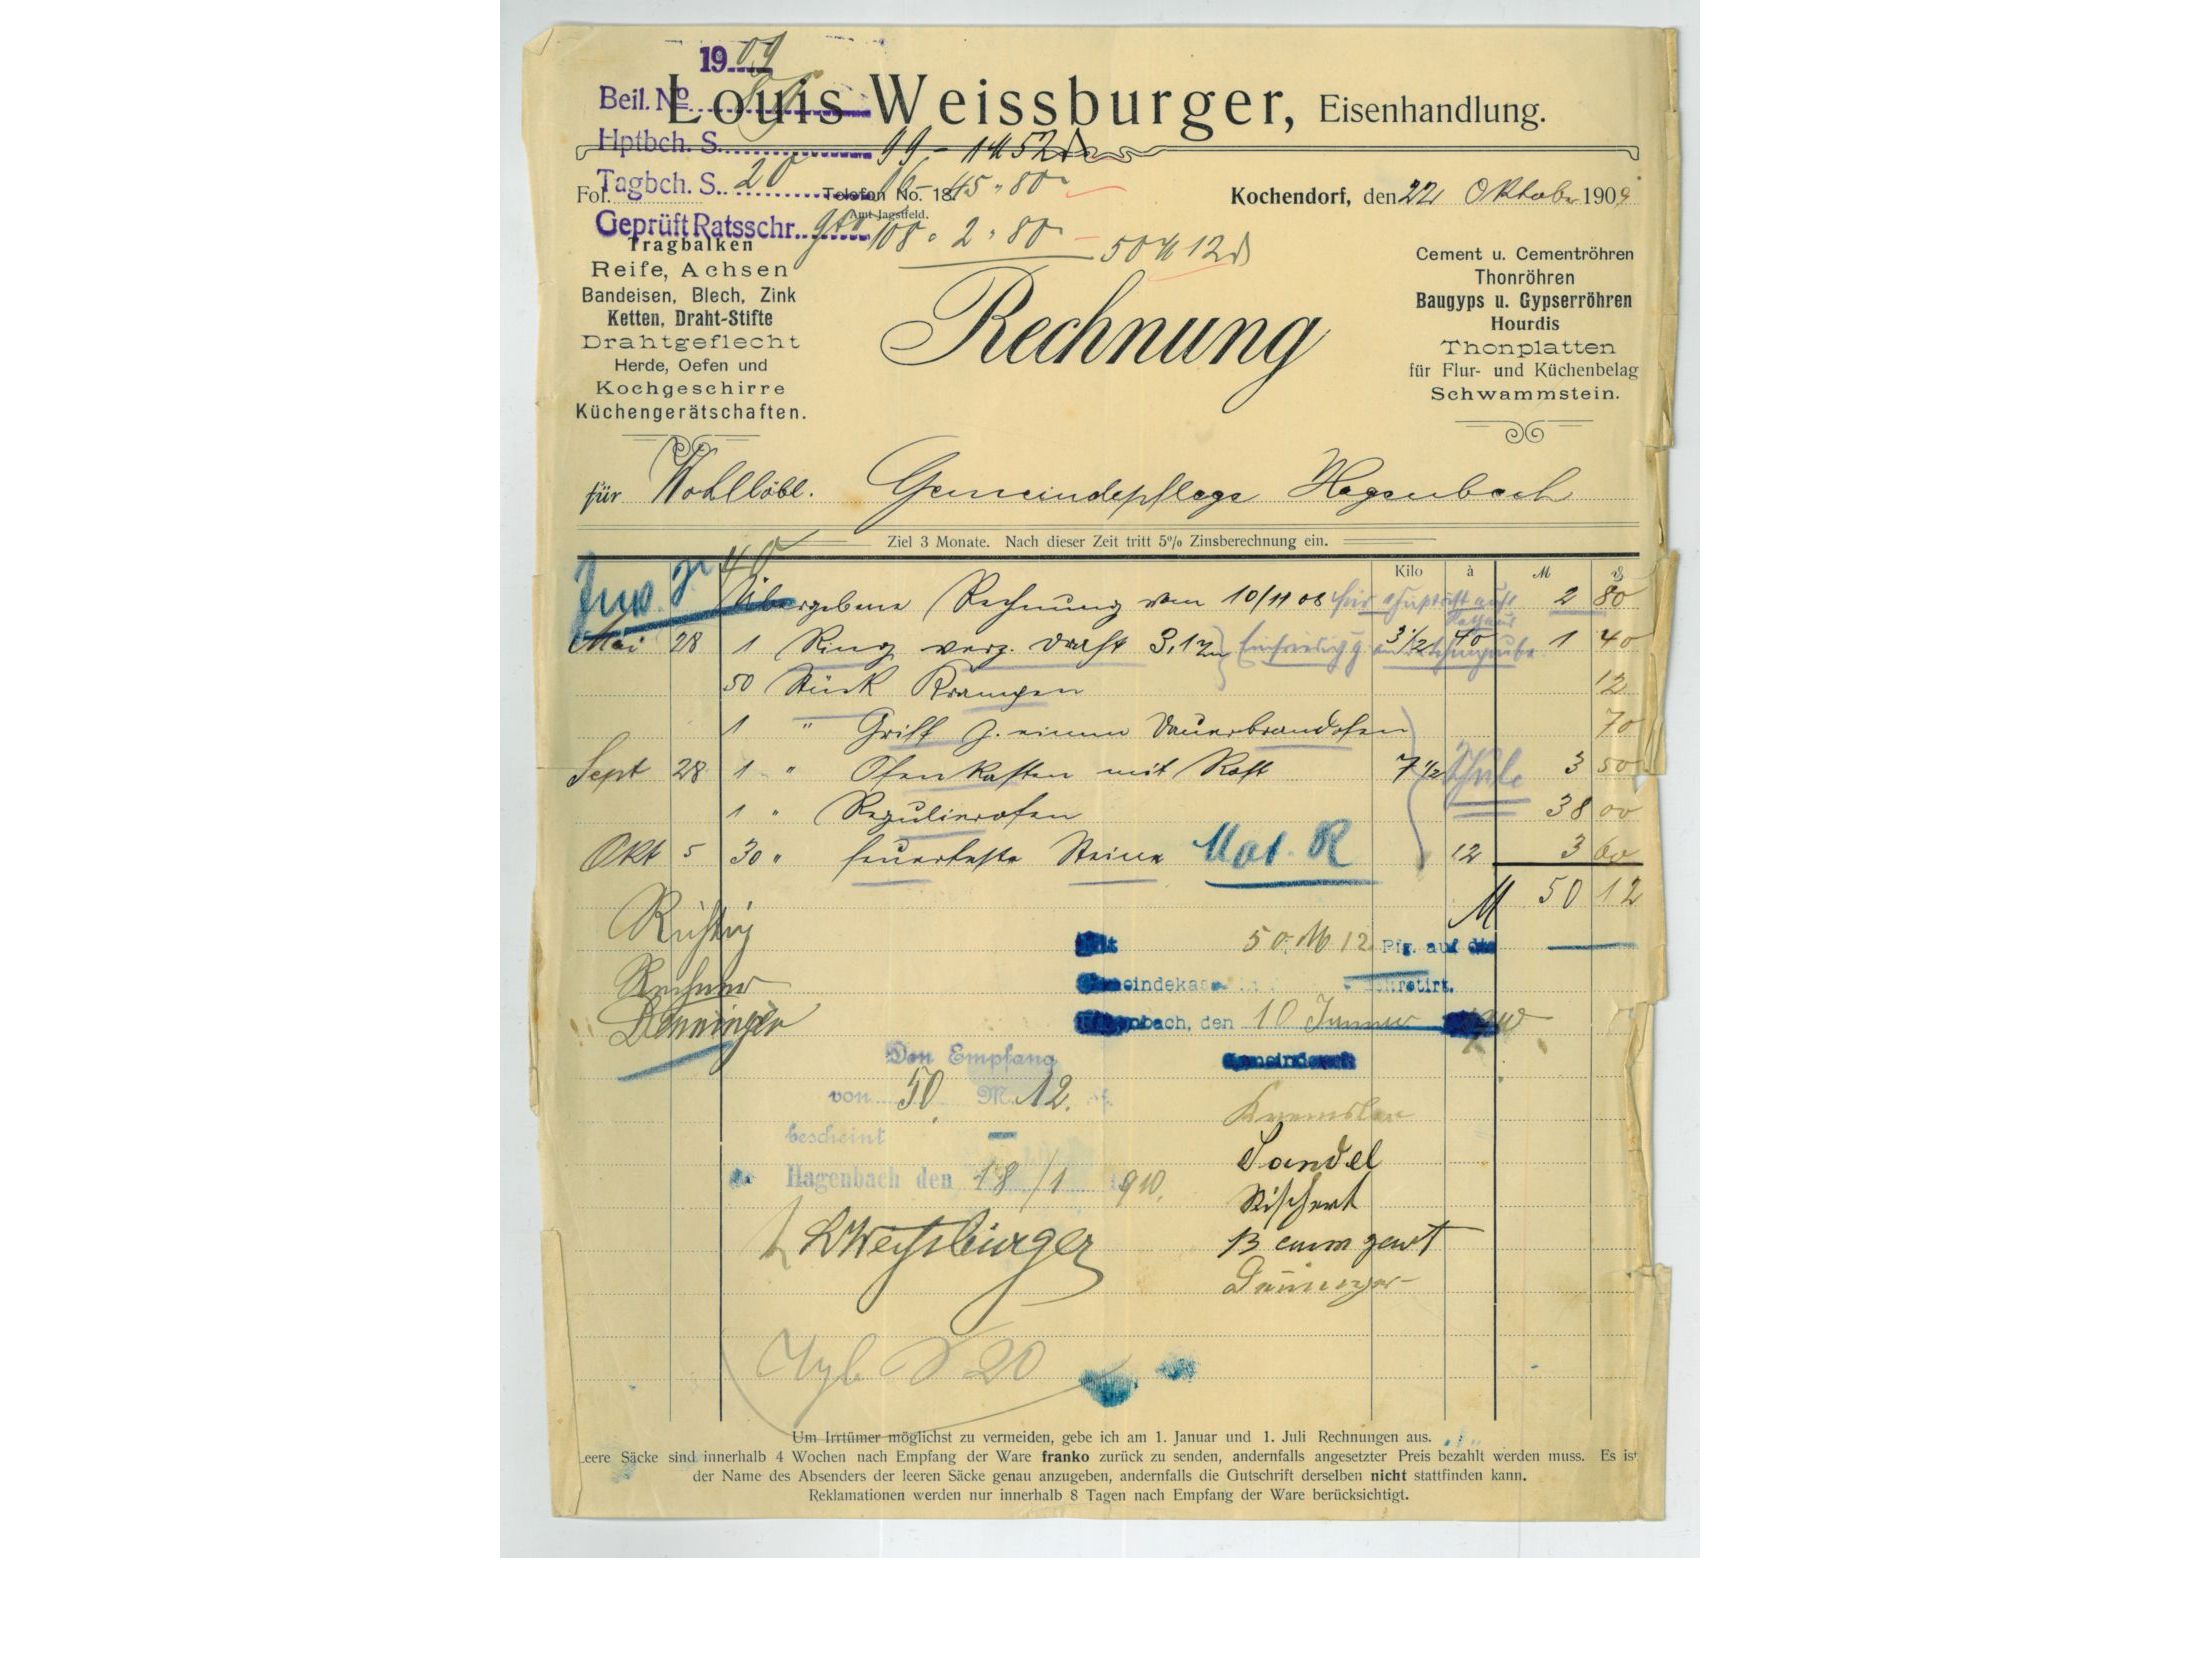 1909
Beil. No
Louis Weissburger, Eisenhandlung.
Hptbch. S. 99 - 1 M 52
Tagbch. S. 20
Fol. Telefon No. 18. 45 " 80
Amt Jagstfeld.
Kochendorf, den 22 Oktober 1909
Geprüft Ratsschr.
108 " 2 " 80 - 50 M 12
Tragbalken
Reife, Achsen
Bandeisen, Blech, Zink
Ketten, Draht-Stifte
Drahtgeflecht
Herde, Oefen und
Kochgeschirre
Küchengerätschaften.
Rechnung
Cement u. Cementröhren
Thonröhren
Baugyps u. Gypserröhren
Hourdis
Thonplatten
für Flur- und Küchenbelag
Schwammstein.
für Wohllöbl. Gemeindepflege Hagenbach
Ziel 3 Monate. Nach dieser Zeit tritt 5% Zinsberechnung ein.
Kilo à M ₰
Übergebene Rechnung vom 10/11 08 2 80
Mai 28 1 Ring verz. Draht 3,1 3 1/2 40 1 40
50 Stück Krampen 12
1 " Griff z. einem Dauerbrandofen 70
Sept 28 1 " Ofenkasten mit Rost 7 1/2 Schule 3 50
1 " Regulierofen 38 00
Okt 5 30 " feuerfeste Steine 12 3 60
M 50 12
Richtig
Rechner
Denninger
50 M 12 Pfg. auf die
Gemeindekasse dekretirt.
Hagenbach, den 10 Januar 1910
Gemeinderat
Den Empfang
von 50 M. 12.
bescheint
Hagenbach den 18/1 1910.
L Weissburger
Sandel
Rischert
Baumgart
Denninger
Tgb S 20
Um Irrtümer möglichst zu vermeiden, gebe ich am 1. Januar und 1. Juli Rechnungen aus.
Leere Säcke sind innerhalb 4 Wochen nach Empfang der Ware franko zurück zu senden, andernfalls angesetzter Preis bezahlt werden muss. Es ist
der Name des Absenders der leeren Säcke genau anzugeben, andernfalls die Gutschrift derselben nicht stattfinden kann.
Reklamationen werden nur innerhalb 8 Tagen nach Empfang der Ware berücksichtigt.